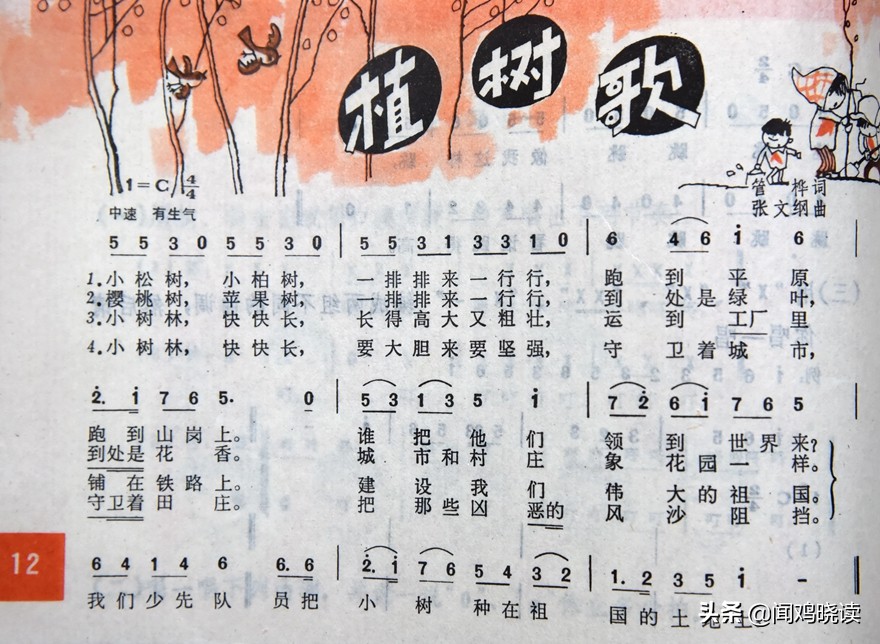 植树歌
1=C 4/4
管桦词
中速 有生气
张文纲曲
5 5 3 0 5 5 3 0 | 5 5 3 1 3 3 1 0 | 6 4 6 i 6 |
1.小松树, 小柏树, 一排排来一行行, 跑到平原
2.樱桃树, 苹果树, 一排排来一行行, 到处是绿叶,
3.小树林, 快快长, 长得高大又粗壮, 运到工厂里
4.小树林, 快快长, 要大胆来要坚强, 守卫着城市,
2. i 7 6 5. 0 | 5 3 1 3 5 i | 7 2 6 i 7 6 5 |
跑到山岗上。 谁把他们领到世界来?
到处是花香。 城市和村庄象花园一样。
铺在铁路上。 建设我们伟大的祖国。
守卫着田庄。 把那些凶恶的风沙阻挡。
6 4 1 4 6 6. 6 | 2. i 7 6 5 4 3 2 | 1. 2 3 5 i -
我们少先队员把小树种在祖国的土地上
12
头条 @闻鸡晓读